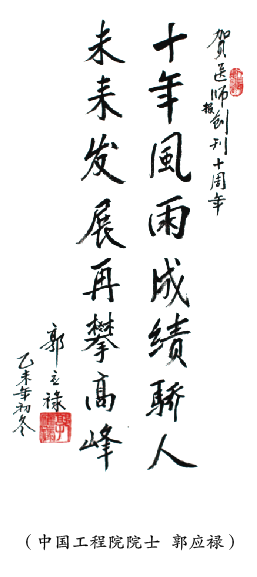 賀医师报创刊十周年
十年風雨成績驕人
未来发展再攀高峰
郭应禄
乙未年初冬
（中国工程院院士 郭应禄）